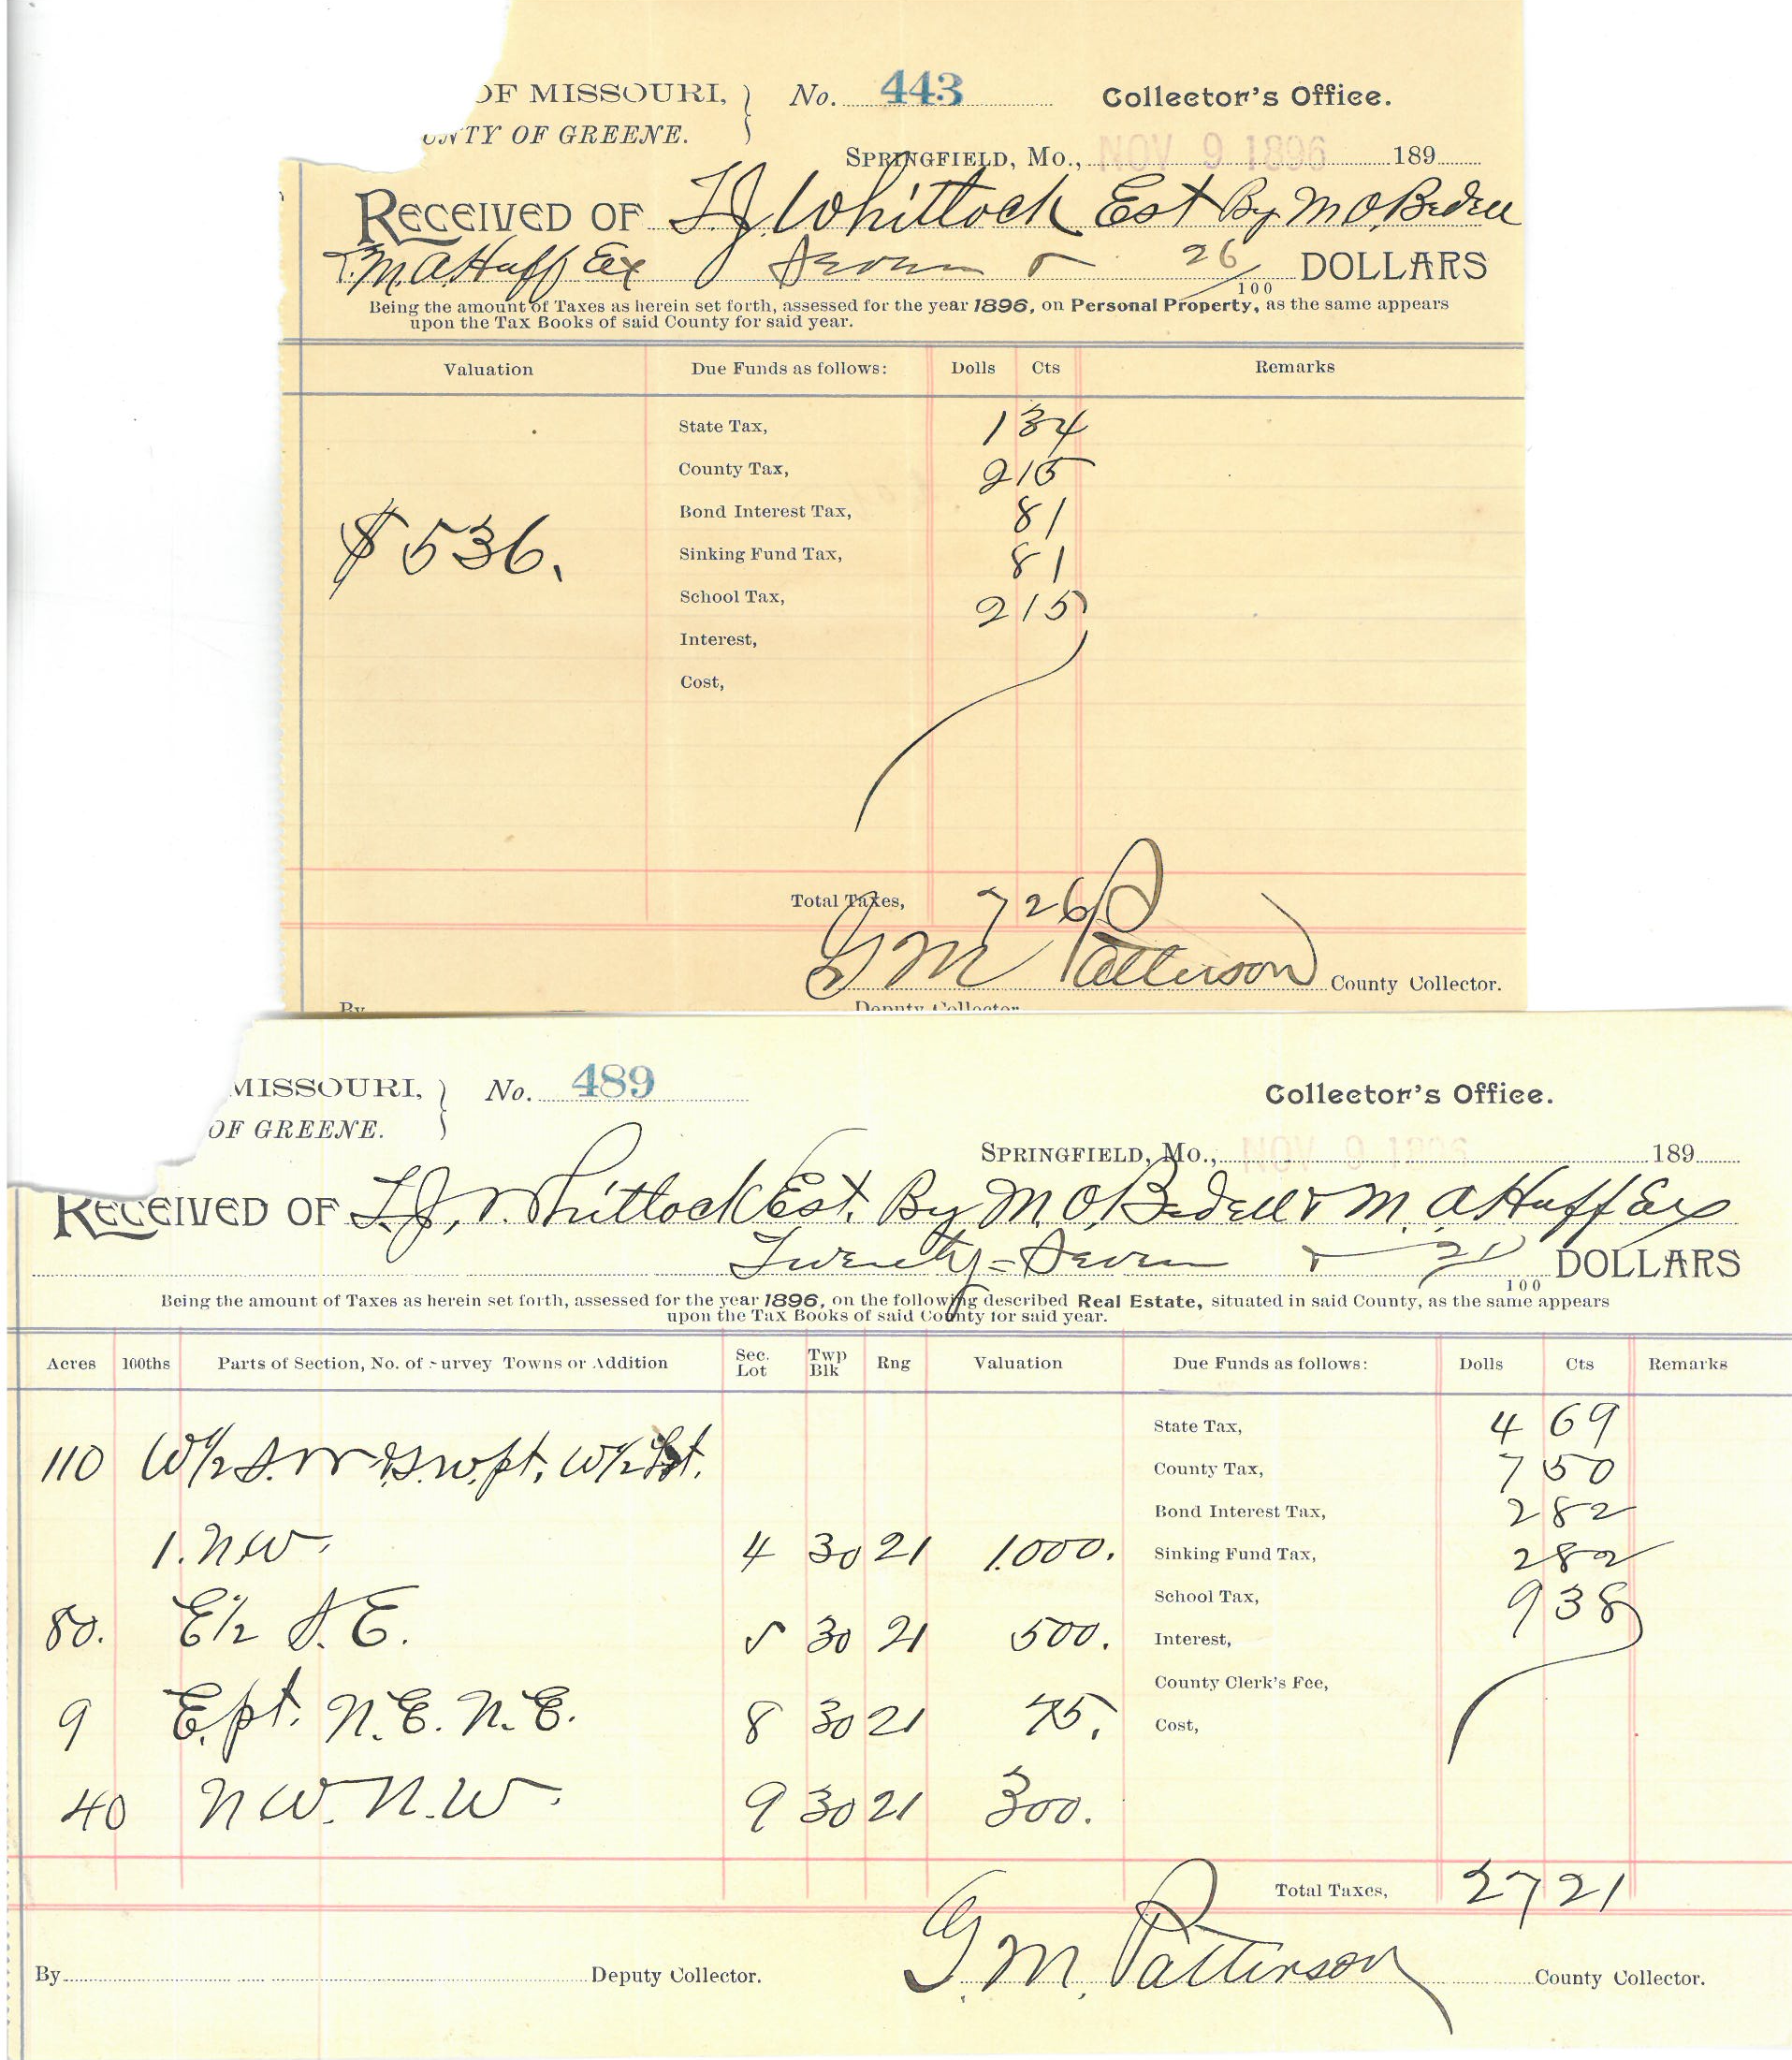 OF MISSOURI, } No. 443 Collector's Office.
UNTY OF GREENE.
SPRINGFIELD, Mo., NOV 9 1896 189
RECEIVED OF L.J. Whitlock Est By M.O. Bedell
& M.A. Huff Ex Seven & 26/100 DOLLARS
Being the amount of Taxes as herein set forth, assessed for the year 1896, on Personal Property, as the same appears
upon the Tax Books of said County for said year.
Valuation Due Funds as follows: Dolls Cts Remarks
State Tax, 1 34
County Tax, 2 15
Bond Interest Tax, 81
$536.
Sinking Fund Tax, 81
School Tax, 2 15
Interest,
Cost,
Total Taxes, 7 26
G M Patterson County Collector.
By Deputy Collector
MISSOURI, } No. 489 Collector's Office.
OF GREENE.
SPRINGFIELD, Mo., NOV 9 1896 189
RECEIVED OF L.J. Whitlock Est. By M.O. Bedell & M. A Huff Exs
Twenty-Seven & 21/100 DOLLARS
Being the amount of Taxes as herein set forth, assessed for the year 1896, on the following described Real Estate, situated in said County, as the same appears
upon the Tax Books of said County for said year.
Acres 100ths Parts of Section, No. of Survey Towns or Addition Sec. Lot Twp Blk Rng Valuation Due Funds as follows: Dolls Cts Remarks
State Tax, 4 69
110 W½ S.W & S.W. pt. W½ Lot.
County Tax, 7 50
Bond Interest Tax, 2 82
1. N.W. 4 30 21 1.000. Sinking Fund Tax, 2 82
School Tax, 9 38
80. E½ S.E. 5 30 21 500. Interest,
County Clerk's Fee,
9 E. pt. N.E. N.E. 8 30 21 75. Cost,
40 N W. N.W. 9 30 21 300.
Total Taxes, 27 21
By Deputy Collector. G. M. Patterson County Collector.